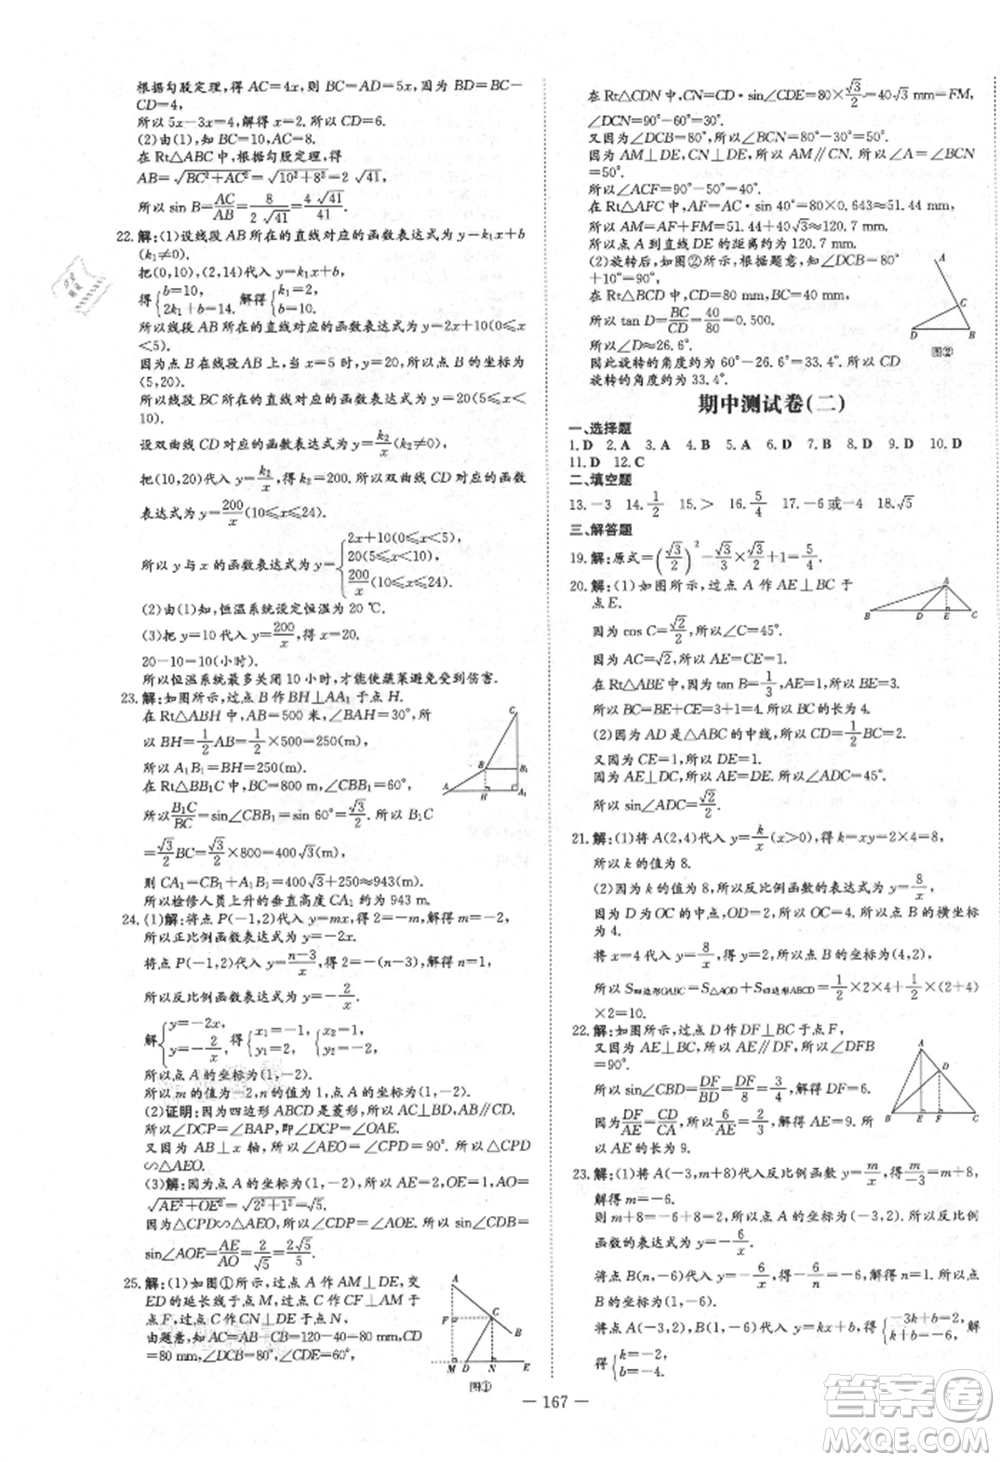 根据勾股定理,得 AC=4x,则 BC=AD=5x,因为 BD=BC-
CD=4,
所以 5x-3x=4,解得 x=2.所以 CD=6.
(2)由(1),知 BC=10,AC=8.
在 Rt△ABC 中,根据勾股定理,得
AB=√BC²+AC²=√10²+8²=2√41.
所以 sin B=AC/AB=8/2√41=4√41/41.
22.解:(1)设线段 AB 所在的直线对应的函数表达式为 y=k₁x+b
(k₁≠0).
把(0,10),(2,14)代入函数表达式,
得{b=10, 2k₁+b=14, 解得{k₁=2, b=10.
所以线段 AB 所在直线对应的函数表达式为 y=2x+10(0≤x
<5).
因为点 B 在线段 AB 上,当 x=5 时,y=20,所以点 B 的坐标为
(5,20).
所以线段 BC 所在的直线对应的函数表达式为 y=20(5≤x<10).
设双曲线 CD 对应的函数表达式为 y=k₂/x(k₂≠0),
把(10,20)代入 y=k₂/x,得 k₂=200.所以双曲线 CD 对应的函数
表达式为 y=200/x(10≤x≤24).
所以 y 与 x 的函数表达式为 y={2x+10(0≤x<5), 20(5≤x<10), 200/x(10≤x≤24).
(2)由(1)知,恒温系统设定恒温为 20 ℃.
(3)把 y=10 代入 y=200/x,得 x=20.
20-10=10(小时).
所以恒温系统最多关闭 10 小时,才能使蔬菜避免受到伤害.
23.解:如图所示,过点 B 作 BH⊥AA₁ 于点 H.
在 Rt△ABH 中,AB=500 米,∠BAH=30°,所
以 BH=1/2AB=1/2×500=250(m).
所以 A₁B₁=BH=250(m).
在 Rt△BB₁C 中,BC=800 m,∠CBB₁=60°,
所以B₁C/BC=sin∠CBB₁=sin 60°=√3/2.所以 B₁C
=√3/2BC=√3/2×800=400√3(m),
则 CA₁=CB₁+A₁B₁=250+400√3≈943(m).
所以检修人员上升的垂直高度 CA₁ 约为 943 m.
24.(1)解:将点 P(-1,2)代入 y=mx,得 2=-m,解得 m=-2.
所以正比例函数表达式为 y=-2x.
将点 P(-1,2)代入 y=n-3/x,得 2=-(n-3),解得 n=1.
所以反比例函数表达式为 y=-2/x.
解{y=-2x, y=-2/x, 得{x₁=-1, y₁=2, {x₂=1, y₂=-2.
所以点 A 的坐标为(1,-2).
所以 m 的值为-2,n 的值为 1,点 A 的坐标为(1,-2).
(2)证明:因为四边形 ABCD 是菱形,所以 AC⊥BD,AB∥CD.
所以∠DCP=∠BAP,即∠DCP=∠OAE.
又因为 AB⊥x 轴,所以∠AEO=∠CPD=90°.所以△CPD
∽△AEO.
(3)解:因为点 A 的坐标为(1,-2),所以 AE=2,OE=1.所以 AO
=√AE²+OE²=√2²+1²=√5.
因为△CPD∽△AEO,所以∠CDP=∠AOE.所以 sin∠CDB=
sin∠AOE=AE/AO=2/√5=2√5/5.
25.解:(1)如图①所示,过点 A 作 AM⊥DE,交
ED 的延长线于点 M,过点 C 作 CF⊥AM,垂
足为 F,过点 C 作 CN⊥DE,垂足为 N.
由题意,知 AC=80 mm,CD=120-40=
80 mm,∠DCB=80°,∠CDE=60°.
图①
在 Rt△CDN 中,CN=CD·sin∠CDE=80×√3/2=40√3 mm=FM,
∠DCN=90°-60°=30°.
又因为∠DCB=80°,所以∠BCN=80°-30°=50°.
因为 AM⊥DE,CN⊥DE,所以 AM∥CN,所以∠A=∠BCN
=50°.
所以∠ACF=90°-50°=40°.
在 Rt△AFC 中,AF=AC·sin 40°≈80×0.643≈51.44 mm,
所以 AM=AF+FM=51.44+40√3≈120.7 mm.
所以点 A 到直线 DE 的距离约为 120.7 mm.
(2)旋转后,如图②所示,根据题意,知∠DCB=80°
+10°=90°.
在 Rt△BCD 中,CD=80 mm,BC=40 mm,
所以 tan D=BC/CD=40/80=0.500.
所以∠D≈26.6°.
因此旋转的角度约为 60°-26.6°=33.4°.所以 CD
旋转的角度约为 33.4°.
图②
期中测试卷(二)
一、选择题
1.D 2.A 3.A 4.B 5.D 6.B 7.B 8.D 9.D 10.D
11.D 12.C
二、填空题
13.-3 14.1/2 15.> 16.5/4 17.-6或-4 18.√5
三、解答题
19.解:原式=(√3/2)²-√3/3×√3/2+1=5/4.
20.解:(1)如图所示,过点 A 作 AE⊥BC 于
点 E.
因为 cos C=√2/2,所以∠C=45°.
因为 AC=√2,所以 AE=CE=1.
在 Rt△ABE 中,因为 tan B=1/3,AE=1,所以 BE=3.
所以 BC=BE+CE=3+1=4.所以 BC 的长为 4.
(2)因为 AD 是△ABC 的中线,所以 CD=1/2BC=2.
又因为 CE=1,所以 DE=CD-CE=1.
因为 AE⊥BC,DE=AE,所以∠ADC=45°.
所以 sin∠ADC=√2/2.
21.解:(1)将 A(2,4)代入 y=k/x(x>0),得 k=xy=2×4=8,
所以 k 的值为 8.
(2)因为 k 的值为 8,所以反比例函数的表达式为 y=8/x.
因为 D 为 OC 的中点,OD=2,所以 OC=4.所以点 B 的横坐标
为 4.
将 x=4 代入 y=8/x,得 y=2.所以点 B 的坐标为(4,2),
所以 S四边形OABC=S△AOD+S四边形ABCD=1/2×2×4+1/2×(2+4)
×2=10.
22.解:如图所示,过点 D 作 DF⊥BC 于点 F,
又因为 AE⊥BC,所以 AE∥DF,所以∠DFB
=90°.
所以 sin∠CBD=DF/BD=DF/10=3/5.所以 DF=6.
因为DF/AE=CD/CA,所以6/AE=2/3,解得 AE=9.所
以 AE 的长为 9.
23.解:(1)将 A(-3,m+8)代入反比例函数 y=m/x,得m/-3=m+8,
解得 m=-6.
则 m+8=-6+8=2.所以点 A 的坐标为(-3,2).所以反比例
函数的表达式为 y=-6/x.
将点 B(n,-6)代入 y=-6/x,得-6/n=-6,解得 n=1.所以点
B(1,-6).
将点 A(-3,2),B(1,-6)代入 y=kx+b,得{-3k+b=2, k+b=-6.
解
得{k=-2, b=-4.
— 167 —
答案圈
MXQE.COM